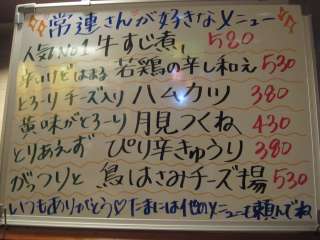 常連さんが好きなメニュー
人気No.1 牛すじ煮 580
辛いけどはまる 若鶏の辛し和え 530
とろーりチーズ入り ハムカツ 380
黄味がとろーり 月見つくね 430
とりあえず ぴり辛きゅうり 380
がっつりと 鳥はさみチーズ揚 530
いつもありがとう♡たまには他のメニューも頼んでね